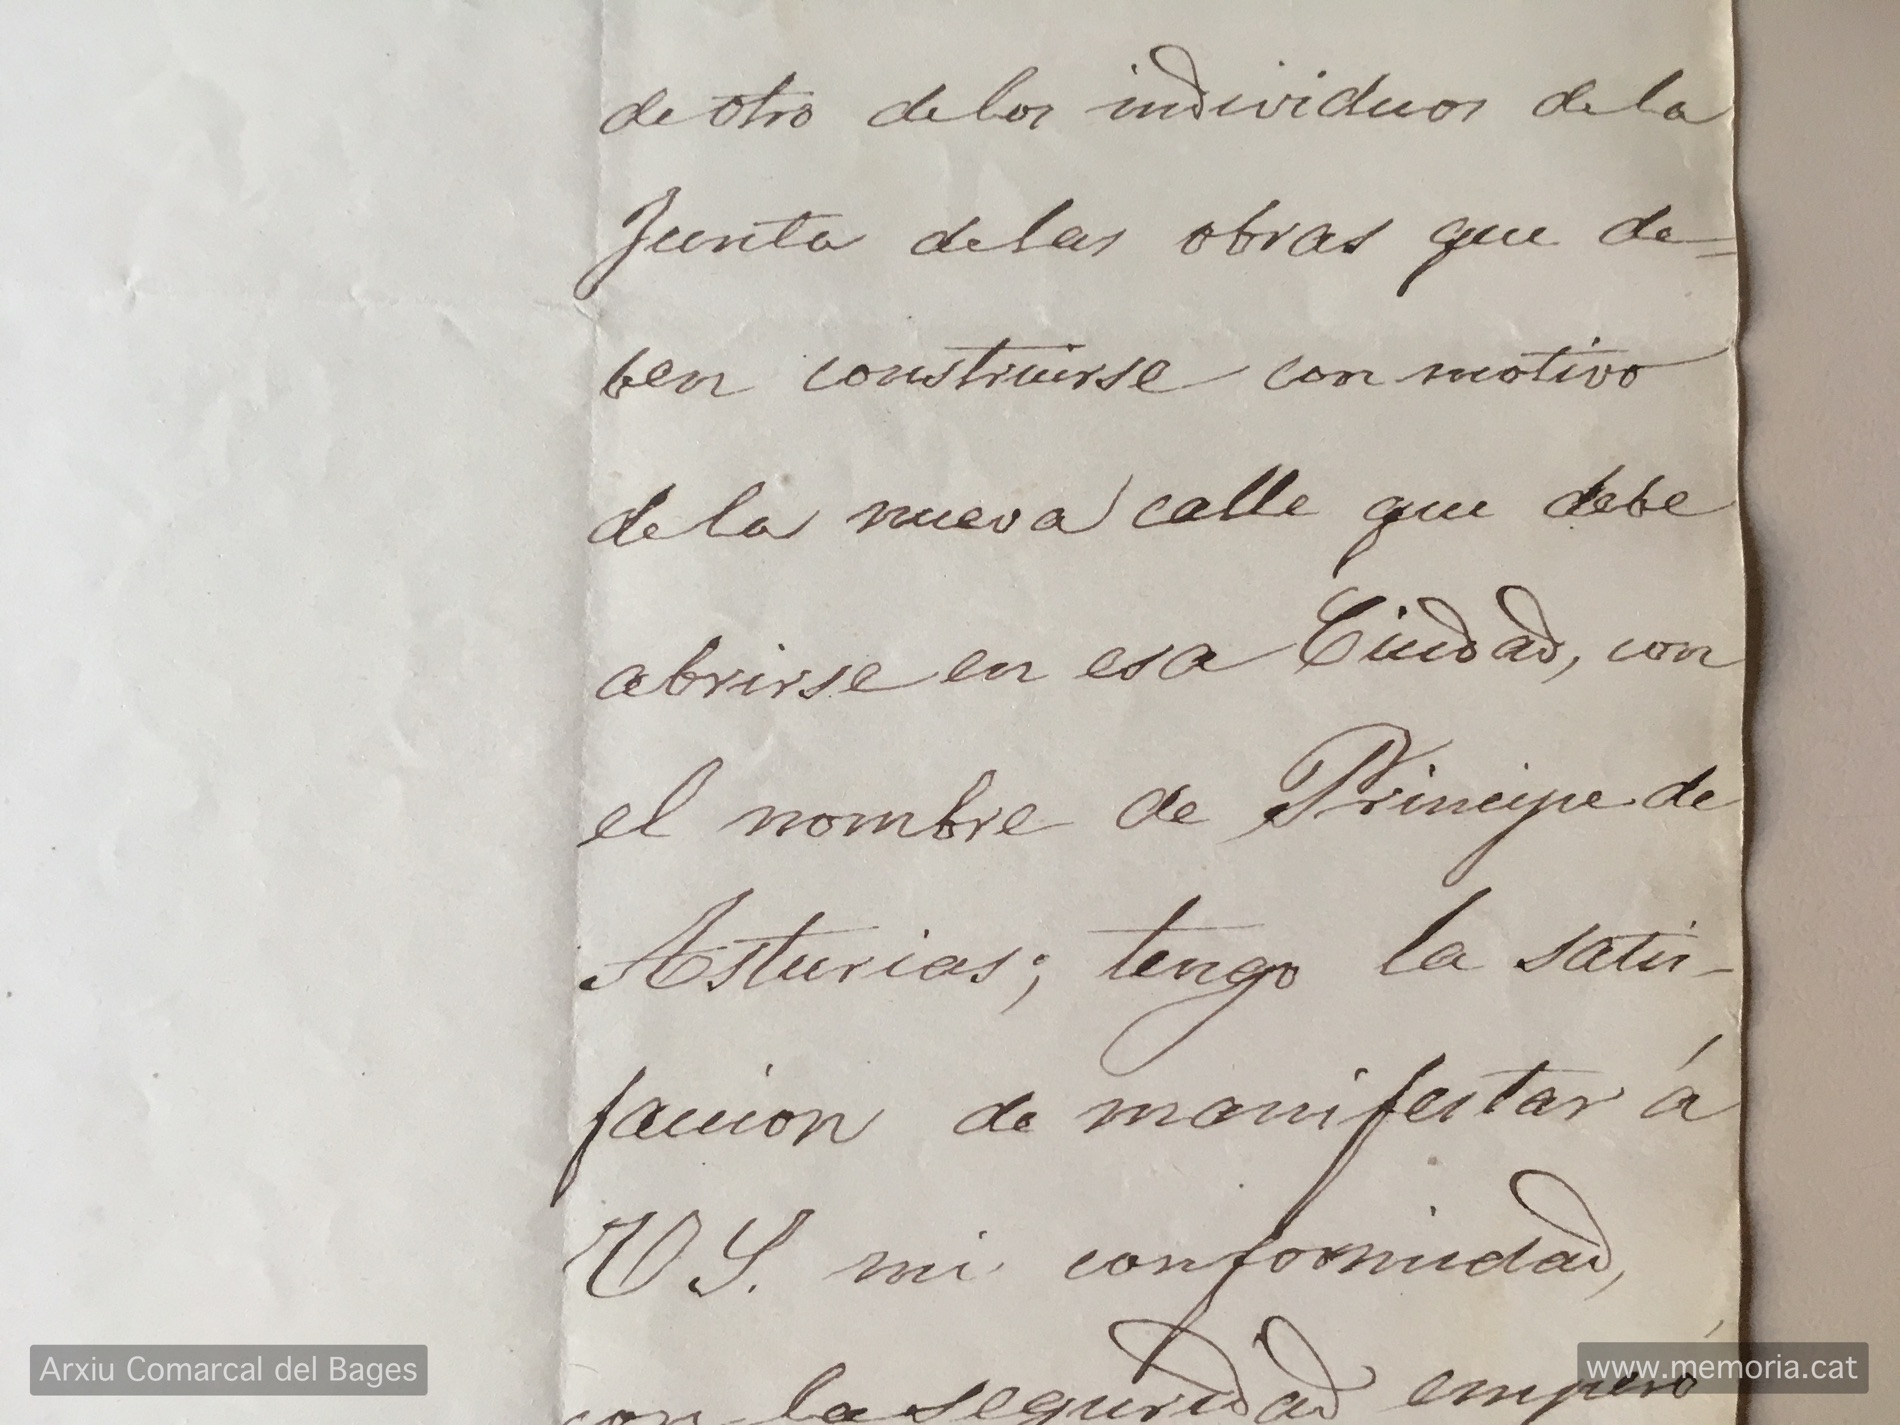 de otro de los individuos de la
Junta de las obras que de=
ben construirse con motivo
de la nueva calle que debe
abrirse en esa Ciudad, con
el nombre de Principe de
Asturias; tengo la satis-
faccion de manifestar á
V.S. mi conformidad,
con la seguridad emperó
Arxiu Comarcal del Bages
www.memoria.cat